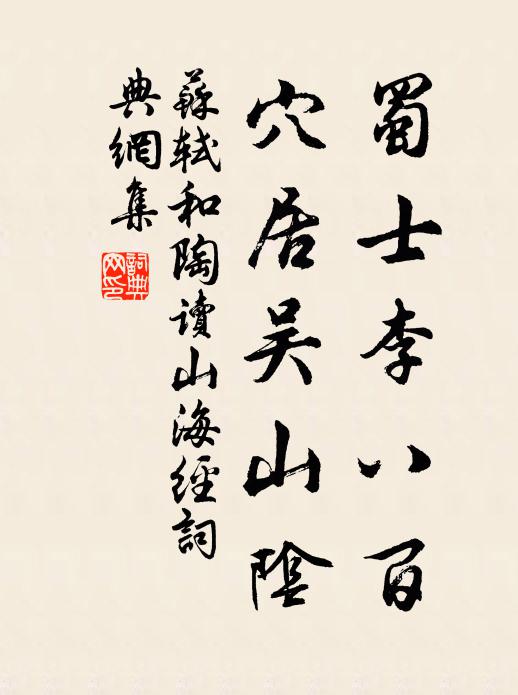 蜀士李八百
穴居吴山陰
蘇軾和陶讀山海經詞
典網集
詞典網印